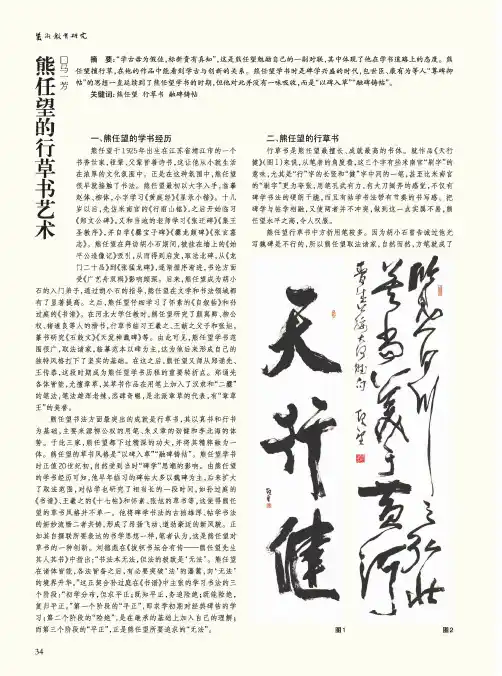 艺术教育研究
熊任望的行草书艺术
□马一芳
摘　要："学古毋为傲俗,标新贵有真知",这是熊任望勉励自己的一副对联,其中体现了他在学书道路上的态度。熊
任望擅行草,在他的作品中能看到学古与创新的关系。熊任望学书时是碑学兴盛的时代,包世臣、康有为等人"尊碑抑
帖"的思想一直延续到了熊任望学书的时期,但他对此并没有一味吸收,而是"以碑入草""融碑铸帖"。
关键词:熊任望　行草书　融碑铸帖
一、熊任望的学书经历
熊任望于1925年出生在江苏省靖江市的一个
书香世家,祖辈、父辈皆善诗书,这让他从小就生活
在浓厚的文化氛围中。正是在这种氛围中,熊任望
很早就接触了书法。熊任望最初以大字入手,临摹
赵体、柳体,小字学习《黄庭经》《星录小楷》。十几
岁以后,先临米南宫的《行前山铭》,之后开始临习
《郑文公碑》,又和当地的老师学习《张迁碑》《集王
圣教序》,并自学《爨宝子碑》《爨龙颜碑》《张玄墓
志》。熊任望在拜访胡小石期间,被挂在墙上的《始
平公造像记》吸引,从而得到启发,取法北碑,从《龙
门二十品》到《张猛龙碑》,逐渐循序渐进,书论方面
受《广艺舟双楫》影响颇深。后来,熊任望成为胡小
石的入门弟子,通过胡小石的指导,熊任望在文学和书法领域都
有了显著提高。之后,熊任望仔细学习了怀素的《自叙帖》和孙
过庭的《书谱》。在河北大学任教时,熊任望研究了颜真卿、柳公
权、褚遂良等人的楷书,行草书临习王羲之、王献之父子和张旭,
篆书研究《石鼓文》《天发神谶碑》等。由此可见,熊任望学书范
围很广,取法诸家,临摹范本以碑为主,这为他后来形成自己的
独特风格打下了坚实的基础。在这之后,熊任望又师从郑诵先、
王传恭,这段时期成为熊任望学书历程的重要转折点。郑诵先
各体皆能,尤擅章草,其草书作品在用笔上加入了汉隶和"二爨"
的笔法,笔法雄浑老辣,恣肆奇崛,是北派章草的代表,有"章草
王"的美誉。
熊任望书法方面最突出的成就是行草书,其以真书和行书
为基础,主要来源柳公权的用笔、朱文章的劲健和李北海的体
势。于此三家,熊任望都下过精深的功夫,并将其精粹融为一
体。熊任望的草书风格是"以碑入草""融碑铸帖"。熊任望学书
时正值20世纪初,自然受到当时"碑学"思潮的影响。由熊任望
的学书经历可知,他早年临习的碑帖大多以魏碑为主,后来扩大
了取法范围,对帖学也研究了相当长的一段时间,如孙过庭的
《书谱》、王羲之的《十七帖》和怀素、张旭的草书等,这使得熊任
望的草书风格并不单一。他将碑学书法的古拙雄厚、帖学书法
的妍妙流畅二者共铸,形成了昂扬飞动、遒劲豪迈的新风貌。正
如其自撰联所要表达的书学思想一样,笔者认为,这是熊任望对
草书的一种创新。刘德选在《拔帜书坛合有待——熊任望先生
其人其书》中指出:"书法本无法,但法的极致是'无法'。熊任望
在诸体皆能、各法皆备之后,有必要突破'法'的藩篱,向'无法'
的境界升华。"这正契合孙过庭在《书谱》中主张的学习书法的三
个阶段:"初学分布,但求平正;既知平正,务追险绝;既能险绝,
复归平正。"第一个阶段的"平正",即求学初期对经典碑帖的学
习;第二个阶段的"险绝",是在继承的基础上加入自己的理解;
而第三个阶段的"平正",正是熊任望所要追求的"无法"。
二、熊任望的行草书
行草书是熊任望最擅长、成就最高的书体。就作品《天行
健》(图1)来说,从笔者的角度看,这三个字有些米南宫"刷字"的
意味,尤其是"行"字的长竖和"健"字中间的一笔,甚至比米南宫
的"刷字"更为夸张,用笔孔武有力,有大刀阔斧的感觉,不仅有
碑学书法的硬朗干健,而且有帖学书法带有节奏的书写感。把
碑学与帖学相融,又使两者并不冲突,做到这一点实属不易,熊
任望水平之高,令人叹服。
熊任望行草书中方折用笔较多。因为胡小石曾告诫过他光
写魏碑是不行的,所以熊任望取法诸家,自然而然,方笔就成了
天行健
图1
图2
34